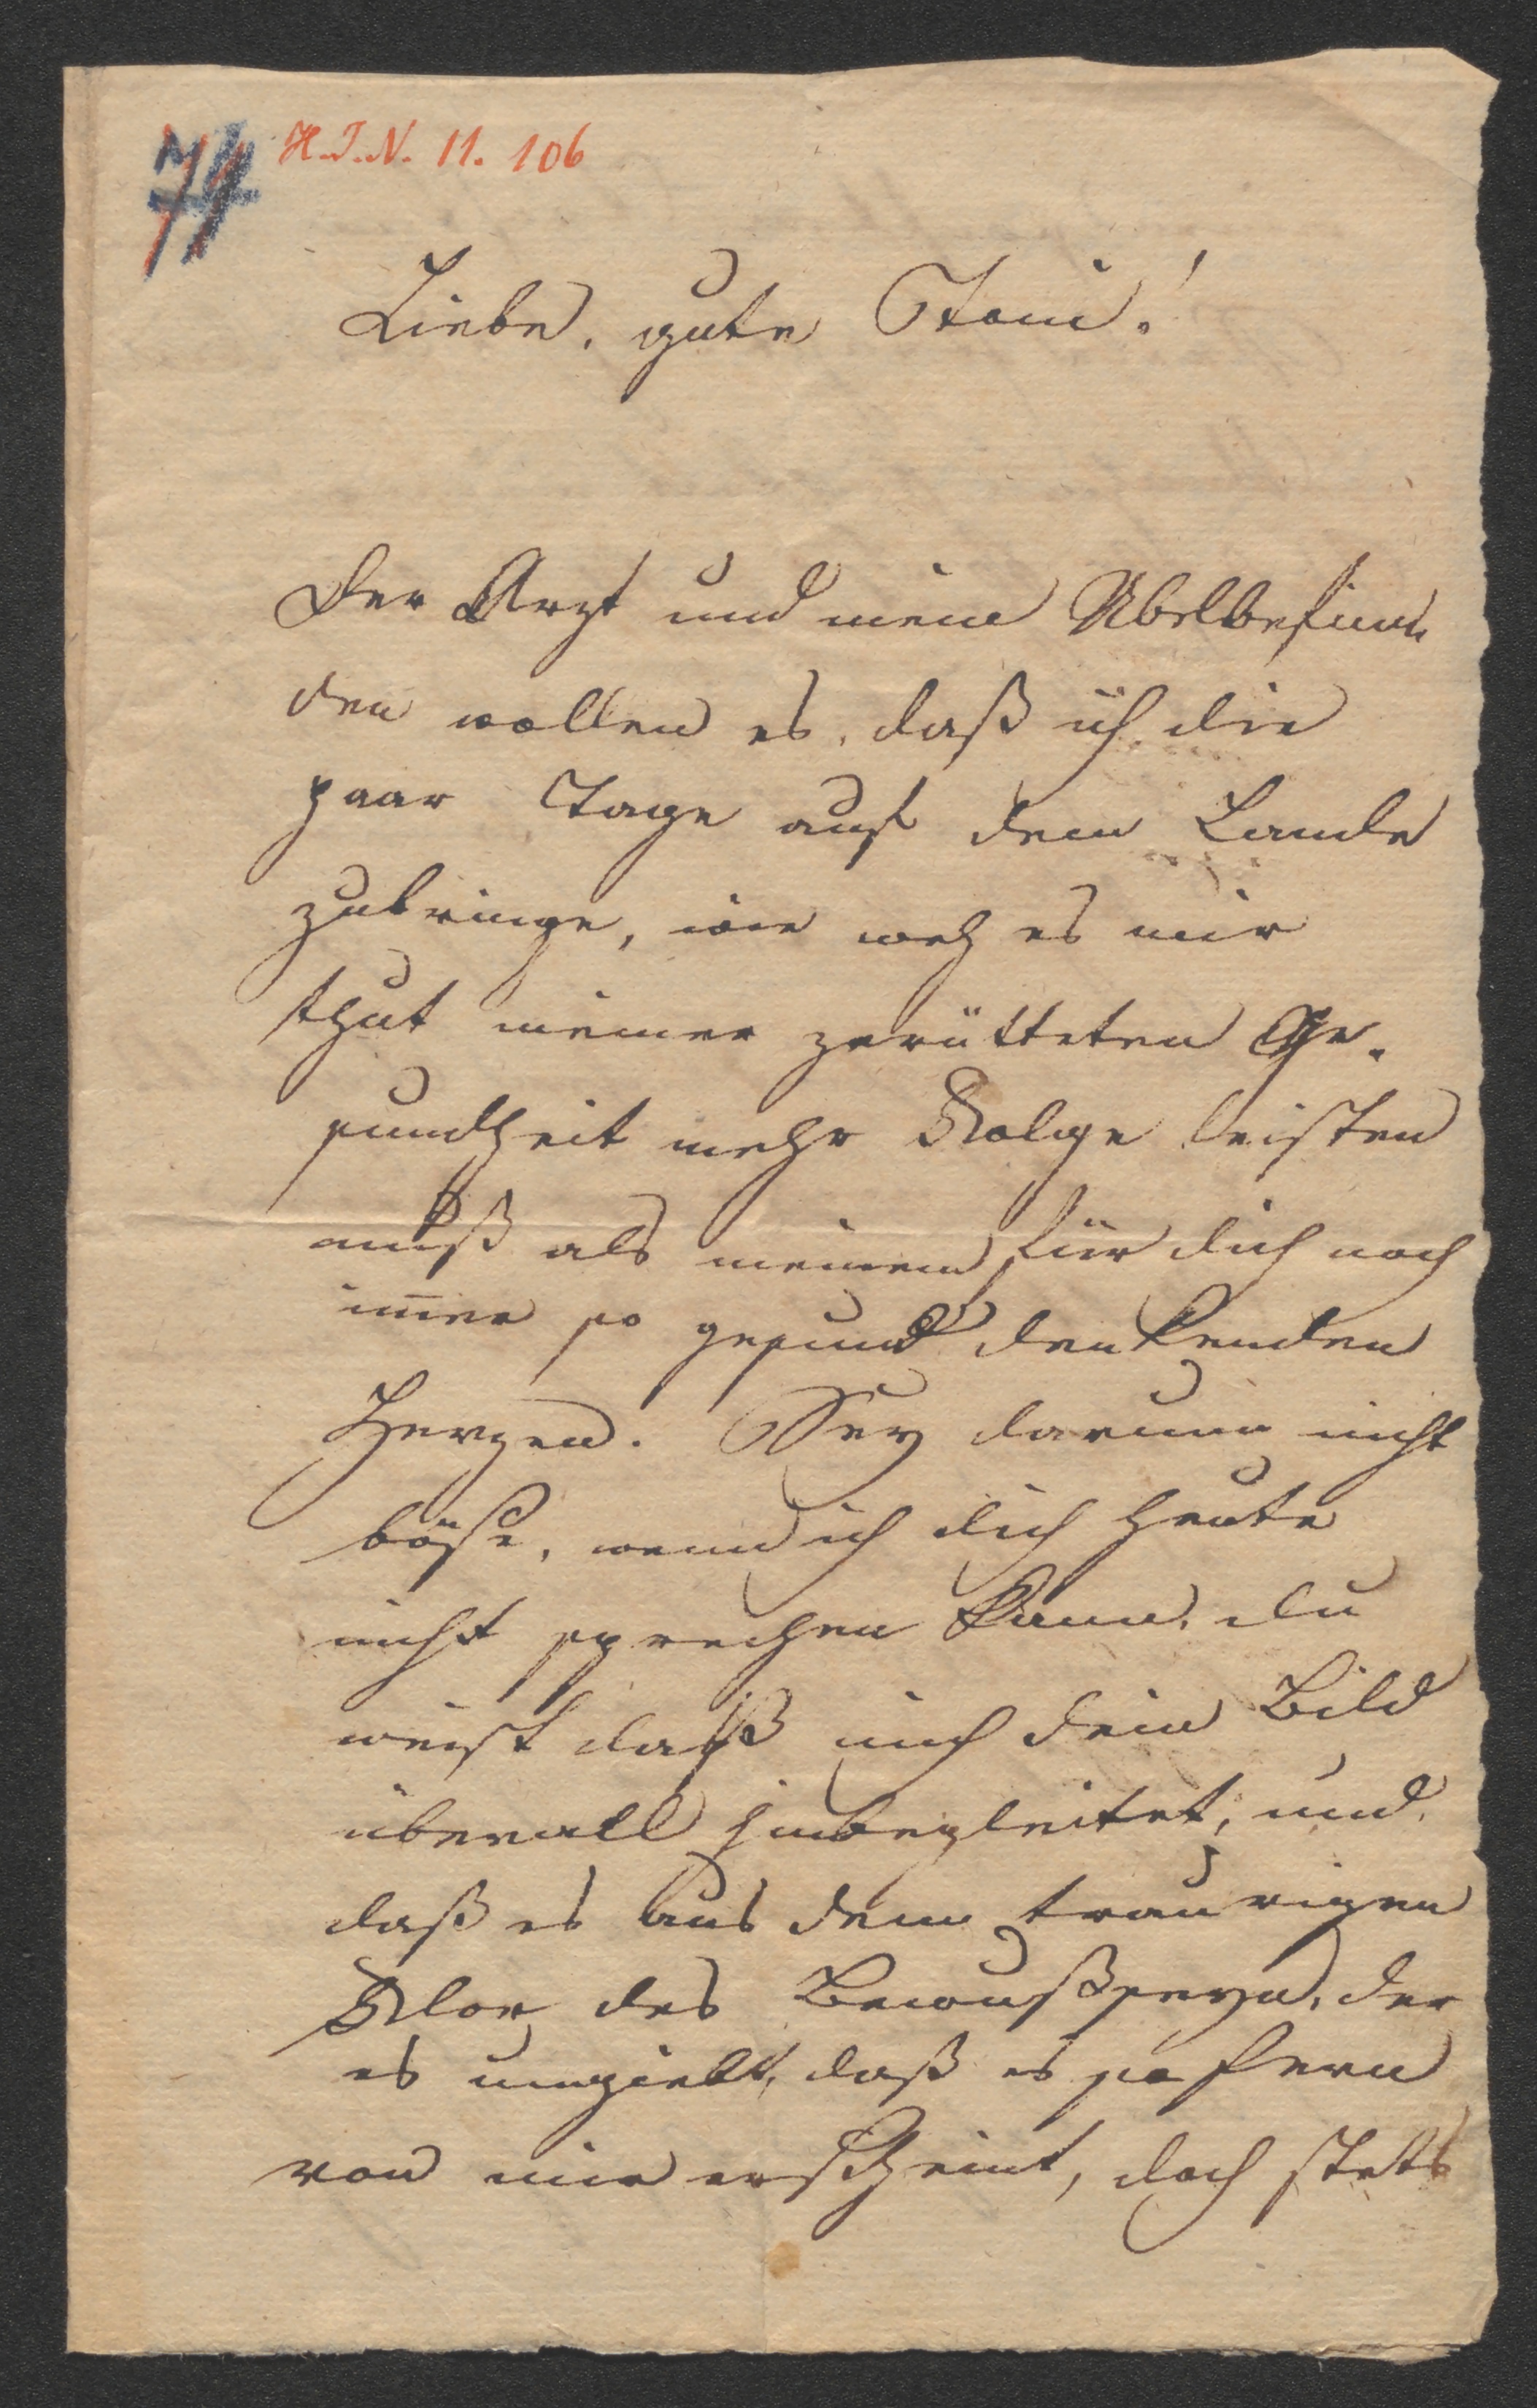 74
H.I.N. 11. 106
Liebe, gute Toni!
Der Arzt und mein Übelbefin-
den wollen es, daß ich die
paar Tage auf dem Lande
zubringe, wie weh es mir
thut meiner zerütteten Ge-
sundheit mehr Folge leisten
muß als meinem für dich noch
im̄er so gesund denkenden
Herzen. Sey darum nicht
böse, wenn ich dich heute
nicht sprechen kann, du
weist daß mich dein Bild
überall hinbegleitet, und
daß es aus dem traurigen
Flor des Bewußseyn, der
es umgiebt, daß es so fern
von mir erscheint, doch stets